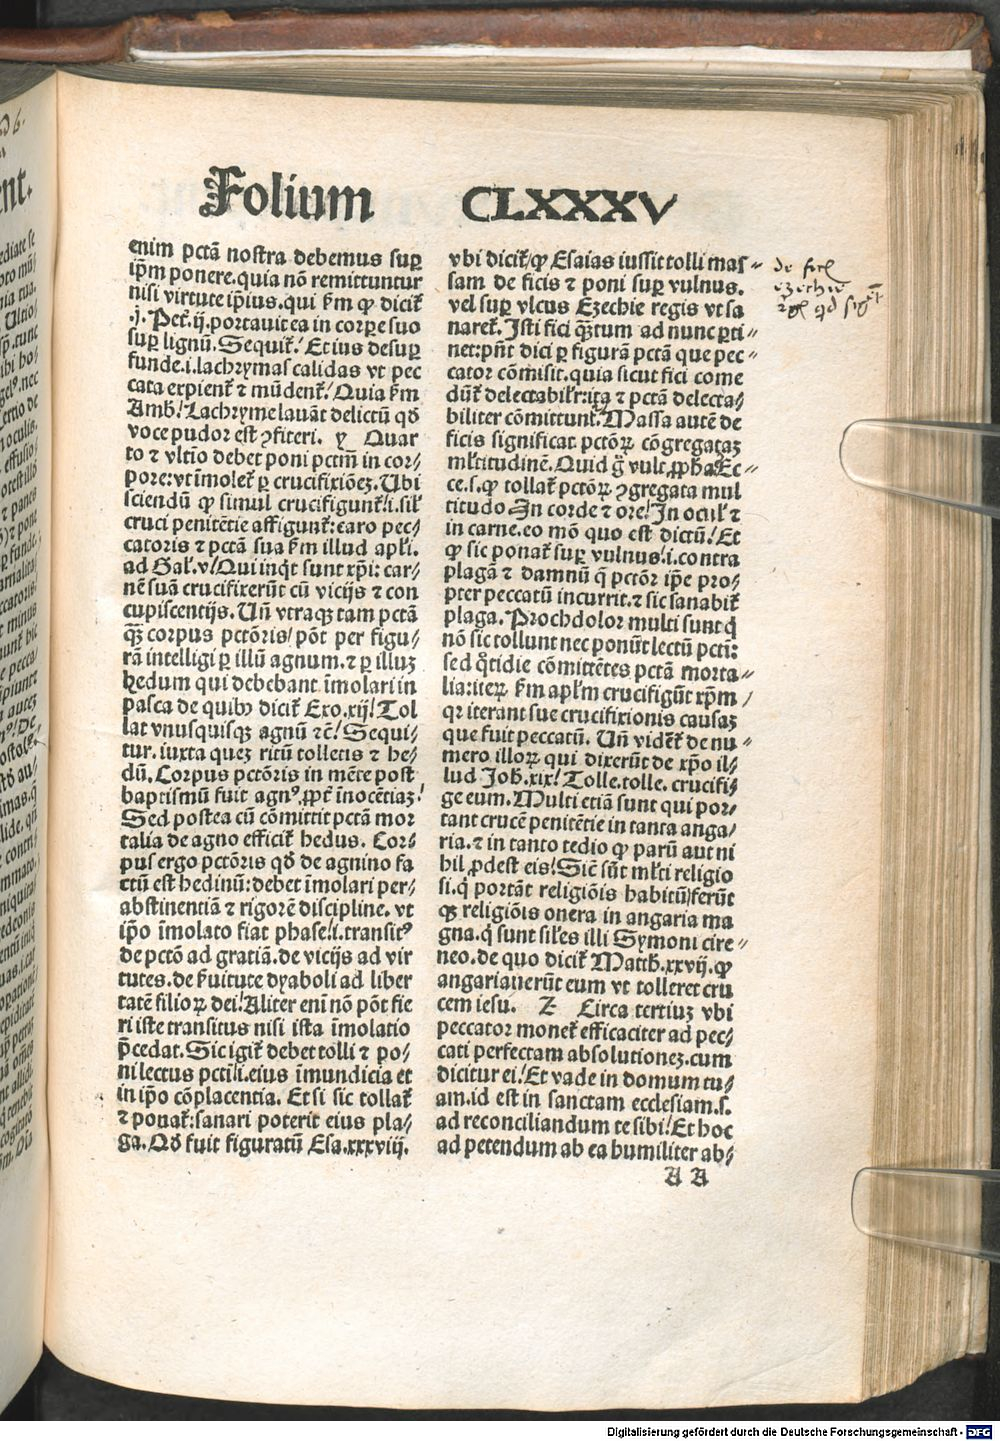 Folium CLXXXV
enim pctā nostra debemus suꝑ
ip̄m ponere.quia nō remittuntur
nisi virtute ip̄ius.qui ẜm ꝙ diciť
.j. Peť.ij.portauit ea in corꝑe suo
suꝑ lignū. Sequiť. Et ius desuꝑ
funde.i.lachrymas calidas vt pec
cata expienť ⁊ mūdenť. Quia ẜm
Amb. Lachryme lauāt delictū qd̄
voce pudor est ꝯfiteri. y Quar
to ⁊ vltīo debet poni pctm̄ in cor/
pore:vt īmoleť ꝑ crucifixiōeꝫ. Ubi
sciendū ꝙ simul crucifigunť.i.sil'
cruci penitētie affigunť:caro pec/
catoris ⁊ pctā sua ẜm illud apl'i.
ad Gal'.v. Qui inq̇t sunt xp̄i: car/
nē suā crucifixerūt cū vicijs ⁊ con
cupiscentijs. Uñ vtraqꝫ tam pctā
qꝫ corpus pctōris/ pōt per figu/
rā intelligi ꝑ illū agnum.⁊ ꝑ illuꝫ
hedum qui debebant īmolari in
pasca de quibꝰ diciť Exo.xij. Tol
lat vnusquisqꝫ agnū ⁊c̄. Sequi/
tur. iuxta quez ritū tolletis ⁊ he/
dū. Corpus pctōris in mēte post
baptismū fuit agnꝰ.ꝓpť īnocētiaꝫ.
Sed postea cū cōmittit pctā mor
talia de agno efficiť hedus. Cor/
pus ergo pctōris qd̄ de agnino fa
ctū est hedinū:debet īmolari per/
abstinentiā ⁊ rigorē discipline. vt
ip̄o īmolato fiat phase.i.transitꝰ
de pctō ad gratiā.de vicijs ad vir
tutes.de ẜuitute dyaboli ad liber
tatē filioꝝ dei. Aliter enī nō pōt fie
ri iste transitus nisi ista īmolatio
p̄cedat. Sic igiť debet tolli ⁊ po/
ni lectus pcti.i.eius īmundicia et
in ip̄o cōplacentia. Et si sic tollať
⁊ ponať:sanari poterit eius pla/
ga. Qd̄ fuit figuratū Esa.xxxviij.
vbi diciť/ꝙ Esaias iussit tolli mas/
sam de ficis ⁊ poni suꝑ vulnus.
vel suꝑ vlcus Ezechie regis vt sa
nareť. Isti fici q̄ꝫtum ad nunc ꝑti/
net:pn̄t dici ꝑ figurā pctā que pec/
cator cōmisit.quia sicut fici come
dūť delectabilr̄:ita ⁊ pctā delecta/
biliter cōmittunť. Massa autē de
ficis significat pctōꝝ cōgregataꝫ
ml'titudinē. Quid g̊ vult ꝓpha Ec/
ce.s.ꝙ tollať pctōꝝ ꝯgregata mul
titudo In corde ⁊ ore. In ocul' ⁊
in carne.eo mō quo est dictū. Et
ꝙ sic ponať suꝑ vulnus.i.contra
plagā ⁊ damnū q̄ pctōr ip̄e pro/
pter peccatū incurrit.⁊ sic sanabiť
plaga. Prochdolor multi sunt q̇
nō sic tollunt nec ponūt lectū pcti:
sed q̊tidie cōmittētes pctā morta/
lia:iteꝝ ẜm apl'm crucifigūt xp̄m/
qꝛ iterant sue crucifixionis causaꝫ
que fuit peccatū. Uñ vidēť de nu/
mero illoꝝ qui dixerūt de xp̄o il/
lud Joh.xix. Tolle.tolle. crucifi/
ge eum. Multi etiā sunt qui por/
tant crucē penitētie in tanta anga/
ria.⁊ in tanto tedio ꝙ parū aut ni
hil ꝓdest eis. Sic̄ sūt ml'ti religio
si.q̇ portāt religiōis habitū/ferūt
qꝫ religiōis onera in angaria ma
gna.q̇ sunt sil'es illi Symoni cire/
neo.de quo diciť Matth.xxvij.ꝙ
angariauerūt eum vt tolleret cru
cem iesu. Z Circa tertiuꝫ vbi
peccator moneť efficaciter ad pec/
cati perfectam absolutioneꝫ.cum
dicitur ei. Et vade in domum tu/
am.id est in sanctam ecclesiam.s.
ad reconciliandum te sibi. Et hoc
ad petendum ab ea humiliter ab/
A A
Digitalisierung gefördert durch die Deutsche Forschungsgemeinschaft - DFG